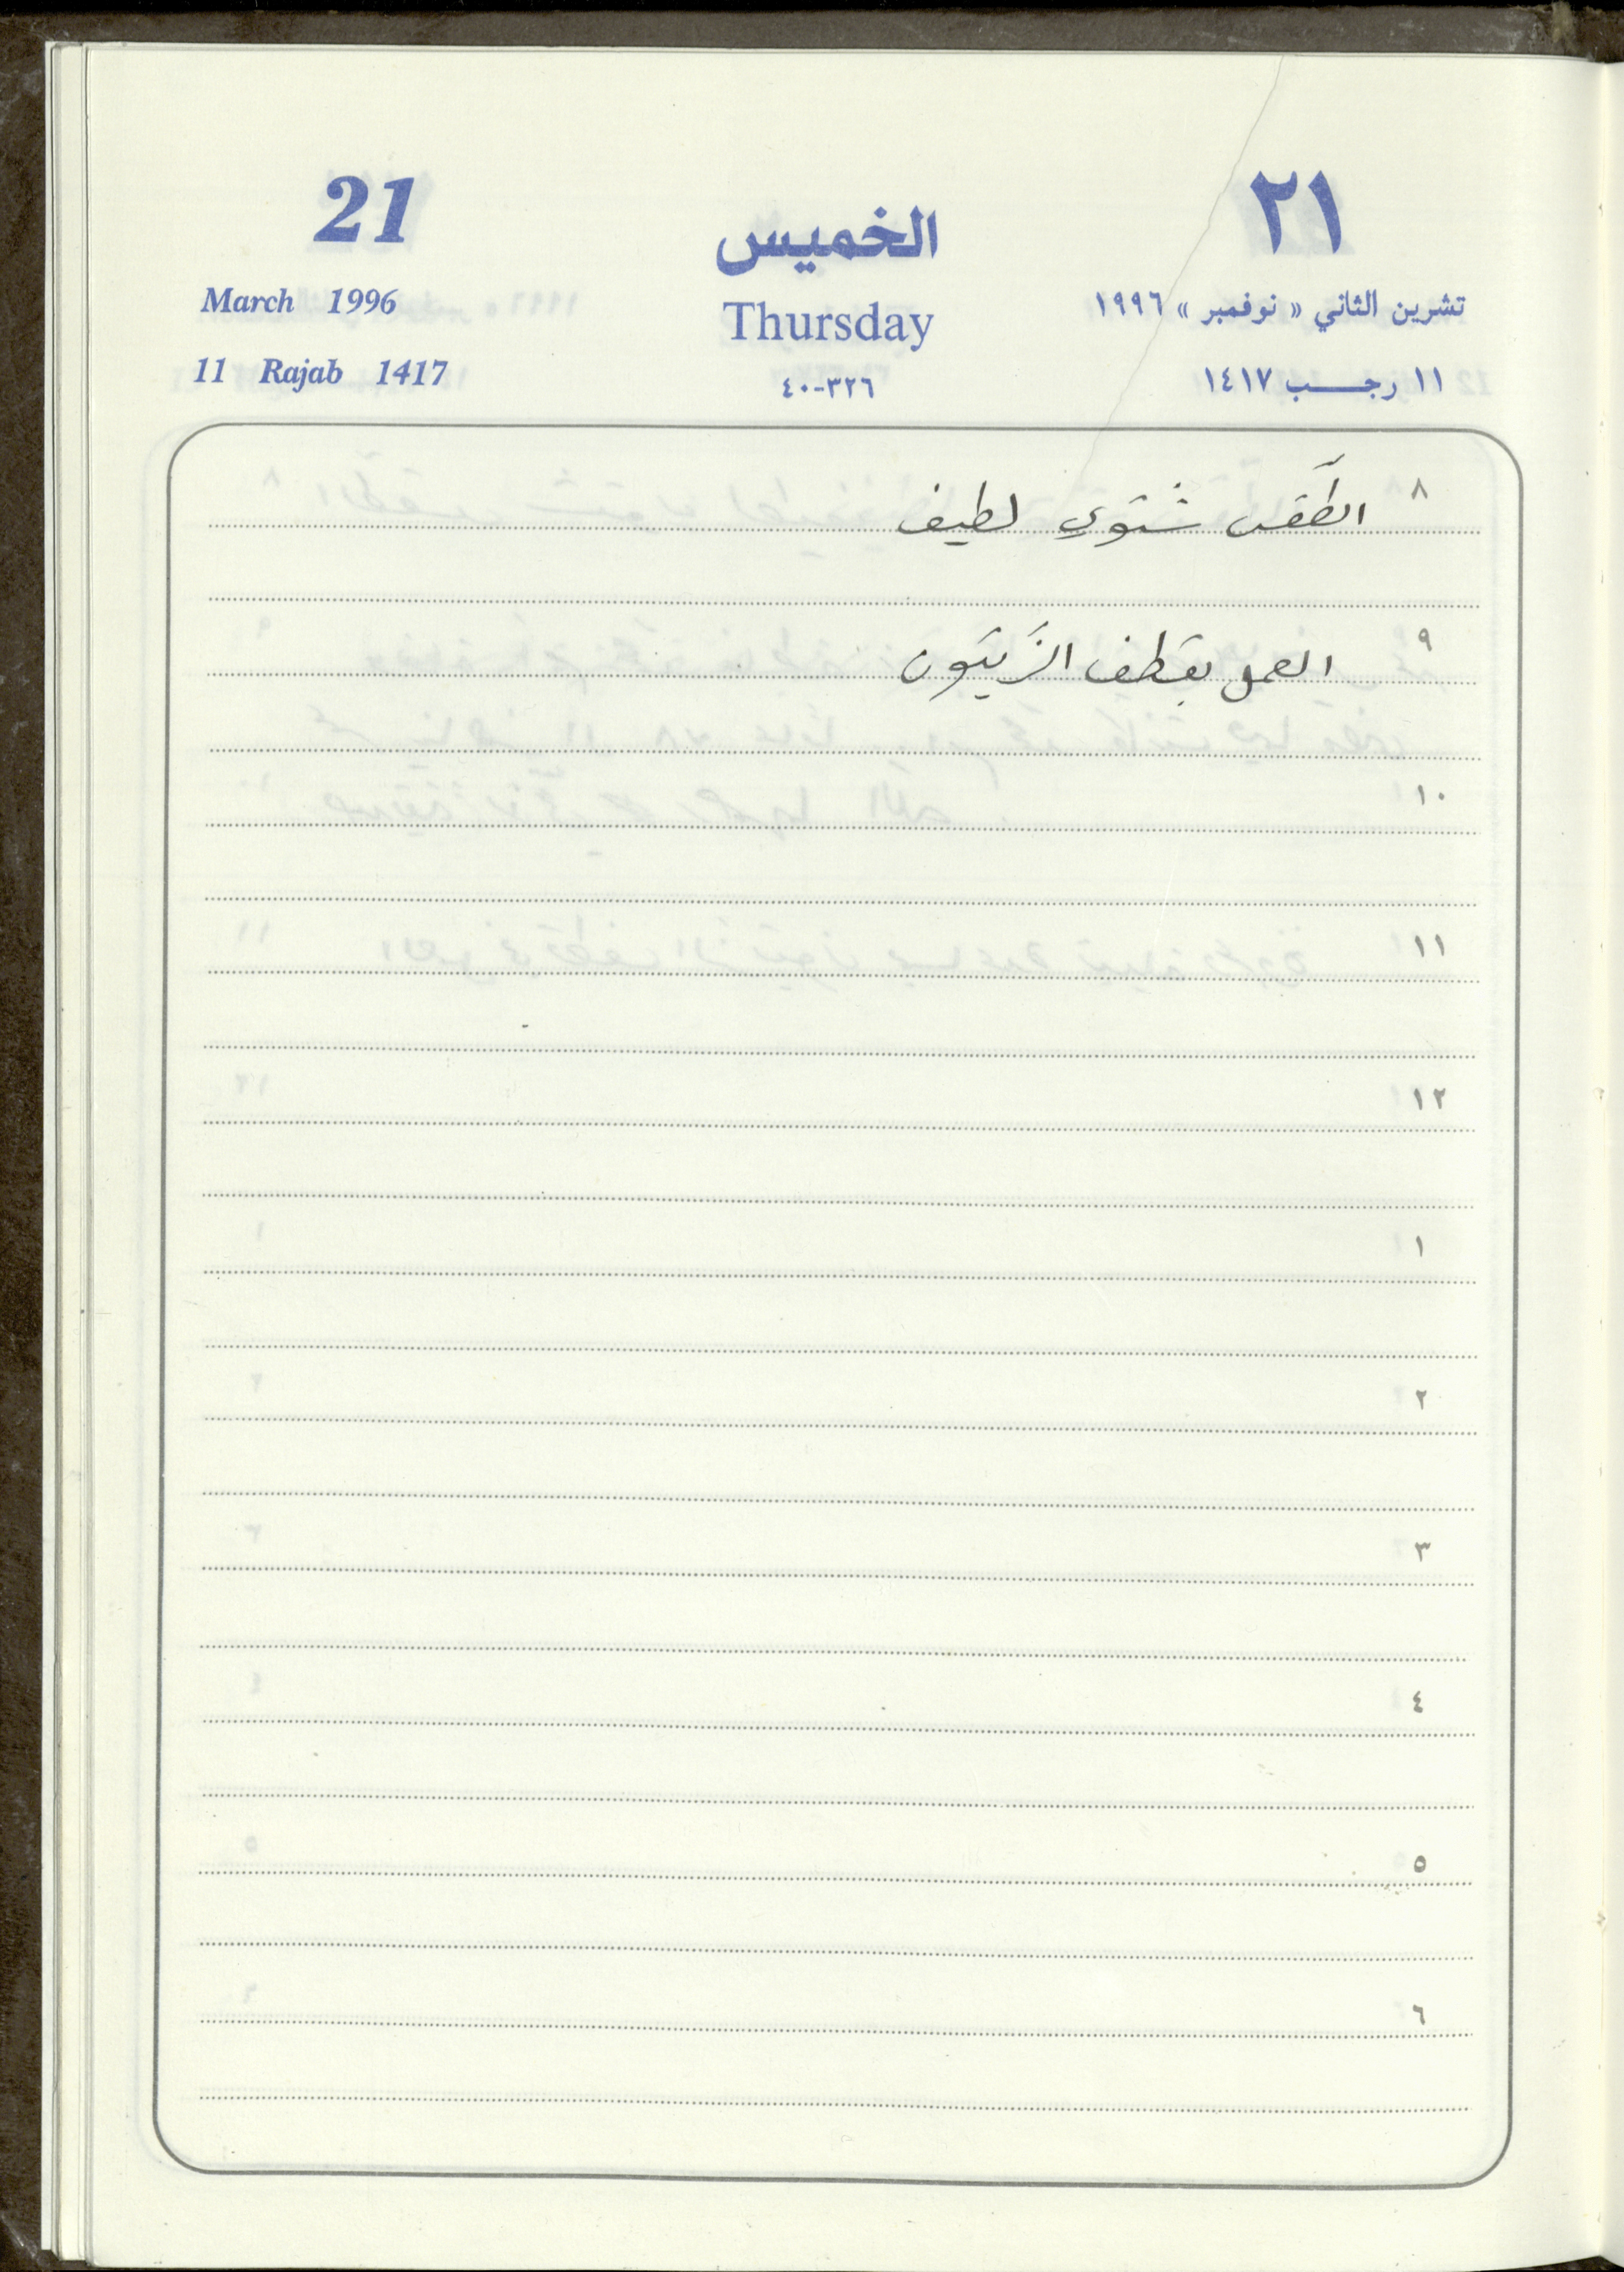 21 الخميس ٢١
March 1996 Thursday تشرين الثاني « نوفمبر » ١٩٩٦
11 Rajab 1417 ٣٢٦-٤٠ ١١ رجب ١٤١٧
٨ الطَّقس شتوي لطيف
٩ العمل بقطف الزَّيتون
١٠
١١
١٢
١
٢
٣
٤
٥
٦